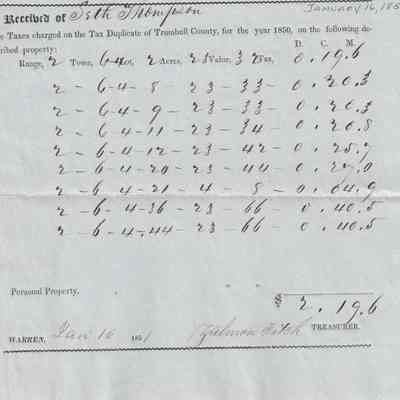 January 16, 185
Received of Seth Thompson
e Taxes charged on the Tax Duplicate of Trumbull County, for the year 1850, on the following de-
cribed property: D. C. M.
Range, 2 Town, 6 4 Lot, 2 Acres, 23 Value, 32 Tax, 0. 19.6
2 - 6 - 4 - 8 - 23 - 33 - 0. 20.3
2 - 6 - 4 - 9 - 23 - 33 - 0. 20.3
2 - 6 - 4 - 11 - 23 - 34 - 0. 20.8
2 - 6 - 4 - 12 - 23 - 42 - 0. 25.7
2 - 6 - 4 - 20 - 23 - 44 - 0. 27.0
2 - 6 4 - 21 - 4 - 8 - 0. 04.9
2 - 6 - 4 - 36 - 23 - 66 - 0. 40.5
2 - 6 - 4 - 44 - 23 - 66 - 0. 40.5
Personal Property.
$ 2. 19.6
WARREN, Jan 16 1851 Zalmon Fitch TREASURER.